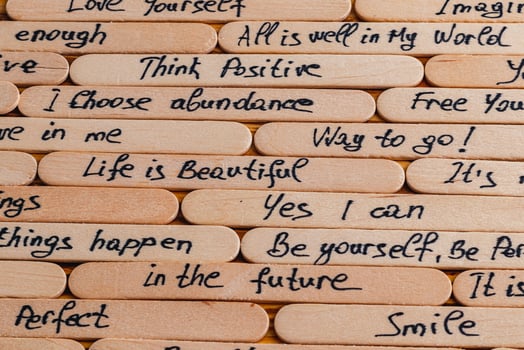 Love yourself Imagin
enough All is well in My World
ve Think Positive Y
I Choose abundance Free You
ve in me Way to go!
Life is Beautiful It's
ngs Yes I can
things happen Be yourself, Be Per
in the future It is
Perfect Smile